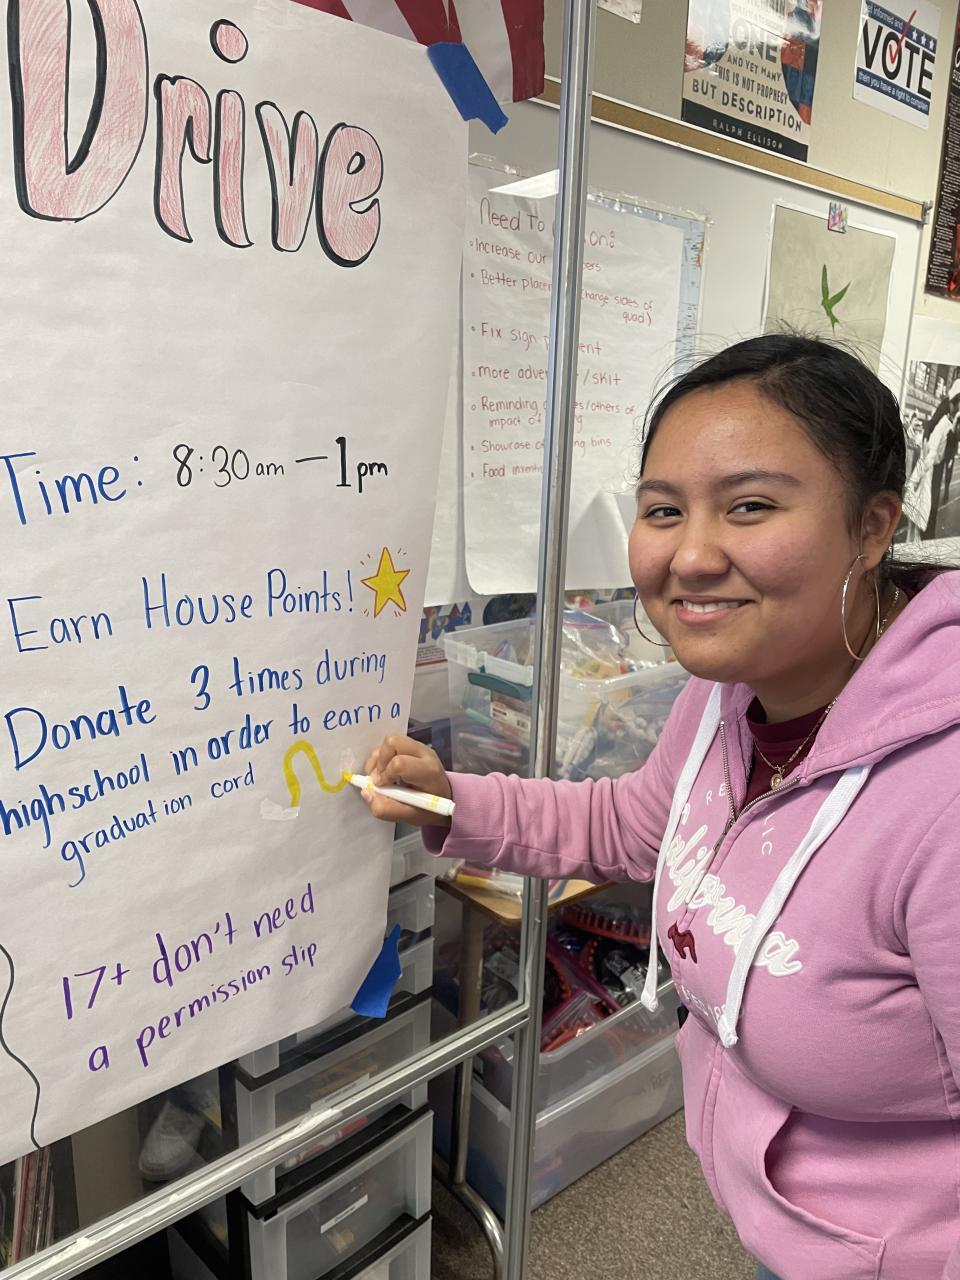 Drive
Time: 8:30am - 1pm
Earn House Points!
Donate 3 times during
highschool in order to earn a
graduation cord
17+ don't need
a permission slip
Need To
• Increase our
• Better change sides of
quad)
• Fix sign
• more /skit
• Reminding /others of
impact of
• Showcase bins
• Food
ONE
AND YET MANY
THIS IS NOT PROPHECY
BUT DESCRIPTION
RALPH ELLISON
get informed and
VOTE
then you have a right to complain
California